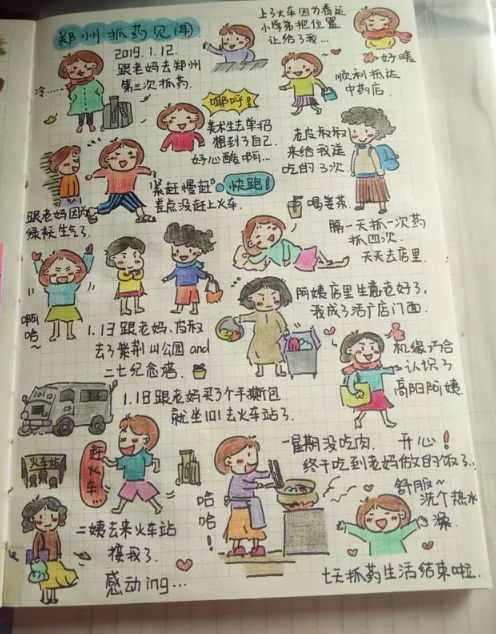 郑州抓药见闻
2019.1.12.
跟老妈去郑州
第三次抓药.
冷…
上了火车因为春运
小学弟把位置
让给了我…
好暖
顺利抵达
中药店.
嘢呼!
美术生去单招
想到了自己
好心酸啊…
老皮叔叔
来给我送
吃的了3次.
“紧赶慢赶” 快跑!
差点没赶上火车.
跟老妈因为
绿袄生气了.
喝姜茶.
隔一天抓一次药
抓四次.
天天去店里.
啊
哈~
阿姨店里生意老好了.
我成了活广店门面.
1.13 跟老妈.
去了紫荆山公园 and
二七纪念塔.
机缘巧合
认识了
高阳阿姨
1.18 跟老妈买了个手撕包
就坐101去火车站了.
火车站
赶火车
一星期没吃肉, 开心!
终于吃到老妈做的饭了..
哈
哈
!
舒服~
洗个热水
澡.
二姨去来火车站
接我了.
感动ing…
七天抓药生活结束啦.